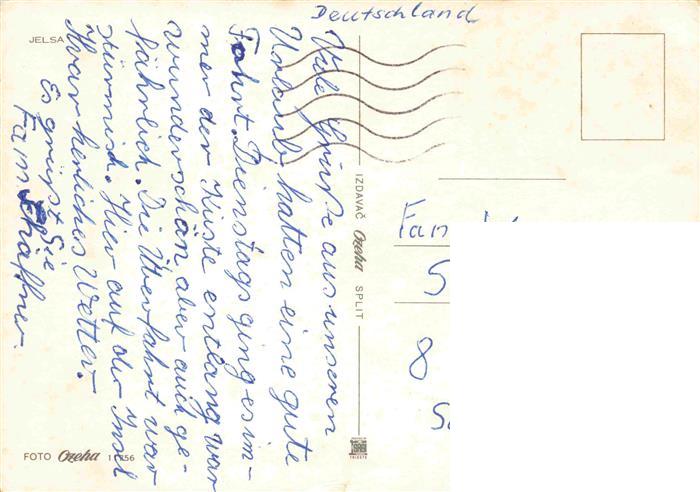 Deutschland
JELSA
Viele Grüße aus unseren
Urlaub hatten eine gute
Fahrt. Dienstags ging es im-
mer der Küste entlang war
wunderschön aber auch ge-
fährlich. Die Überfahrt war
stürmisch. Hier auf der Insl
Hvar herliches Wetter.
Es grüßt Sie
Fam Schaffner.
IZDAVAČ Ozeha SPLIT
Fam
S
8
S
FOTO Ozeha